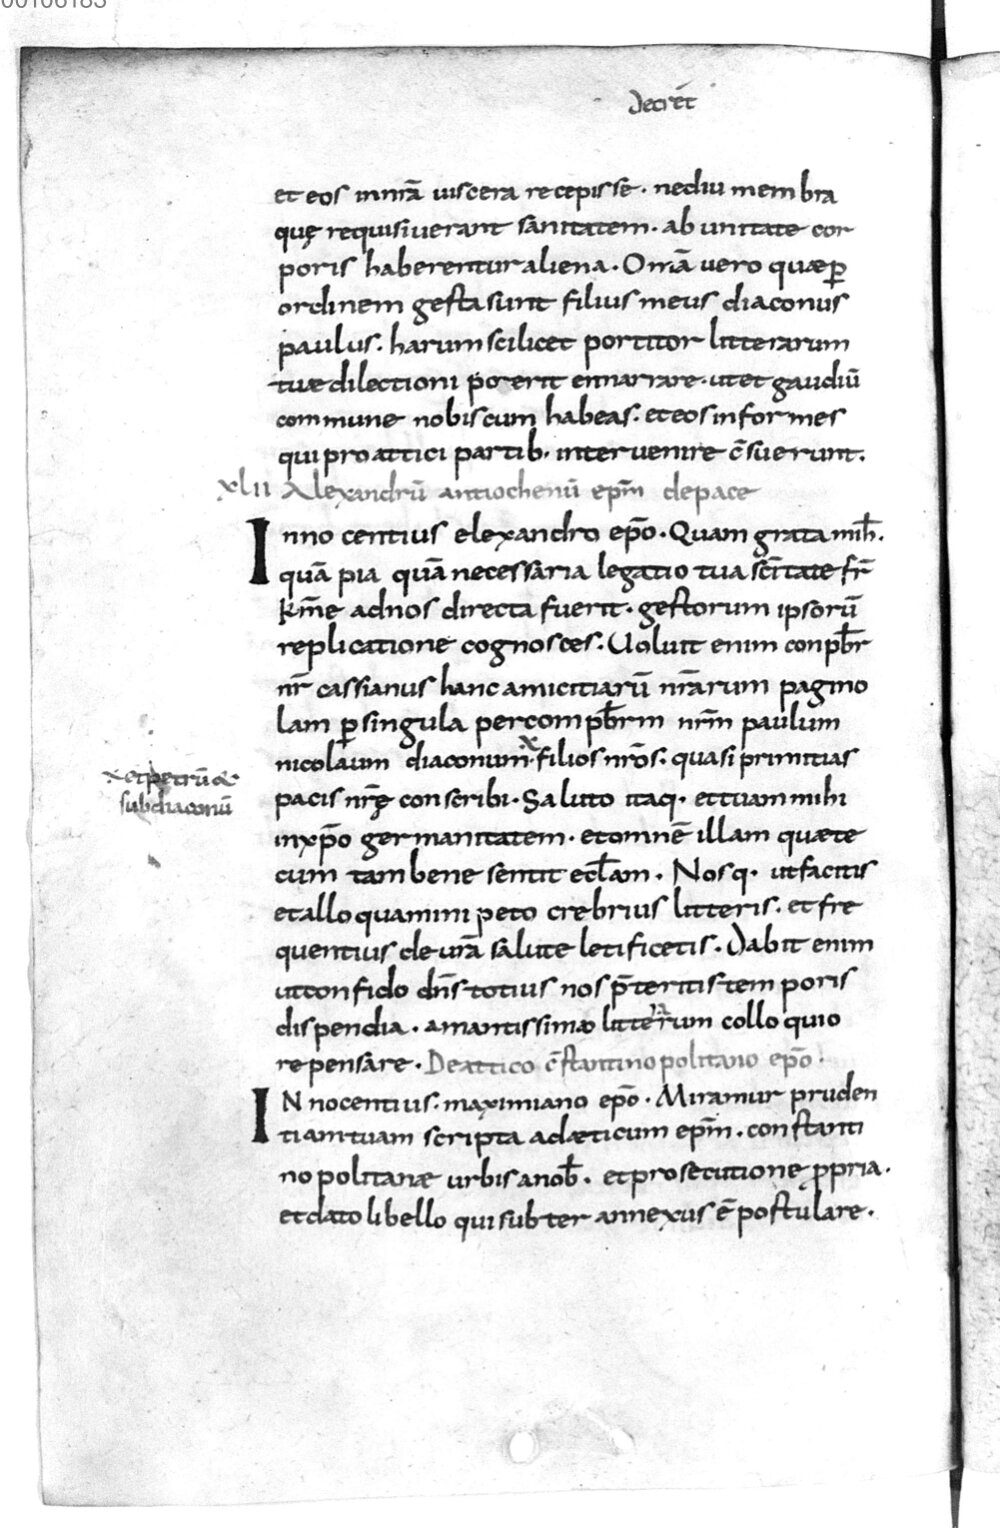 00106183
decret̄
et eos innr̄ā uiscera recepisse · nediu membra
quę requisiuerant sanitatem · ab unitate cor
poris haberentur aliena · Om̄ā uero quæꝑ
ordinem gesta sunt filius meus diaconus
paulus · harum scilicet portitor litterarum
tuæ dilectioni poterit ennarrare · ut et gaudiū
commune nobiscum habeas · et eos informes
qui pro attici partib · interuenire c̄sueruunt ·
xlii Alexandrū antiochenū ep̄m de pace
Innocentius elexandro ep̄o · Quam grata mih̄ ·
quā pia quā necessaria legatio tua sc̄itate fr̄
km̄e adnos directa fuerit · gestorum ipsorū
replicatione cognosces · Uoluit enim conpb̄r
nr̄ cassianus hanc amicitiarū nr̄arum pagino
lam ꝑ singula per compb̄rm nr̄m paulum
nicolaum diaconum · filios nr̄os · quasi primitias
⁒ et petrū &
subdiaconū
pacis nr̄ę conscribi · Saluto itaq · et tuam mihi
inxp̄o germanitatem · et omnē illam quæ te
cum tam bene sentit eccl̄am · Nosq · ut facitis
et allo quamini peto crebrius litteris · et fre
quentius de ur̄ā salute letificetis · Dabit enim
ut confido dn̄s totius nos p̄teritis temporis
dispendia · amantissimæ litterarum collo quio
repensare · De attico c̄stantinopolitano ep̄o ·
INnocentius · maximiano ep̄o · Miramur pruden
tiam tuam scripta adæticum ep̄m · constanti
nopolitanæ urbis anob̄ · et prosecutione ꝓpria ·
et dato libello qui subter annexus ē postulare ·